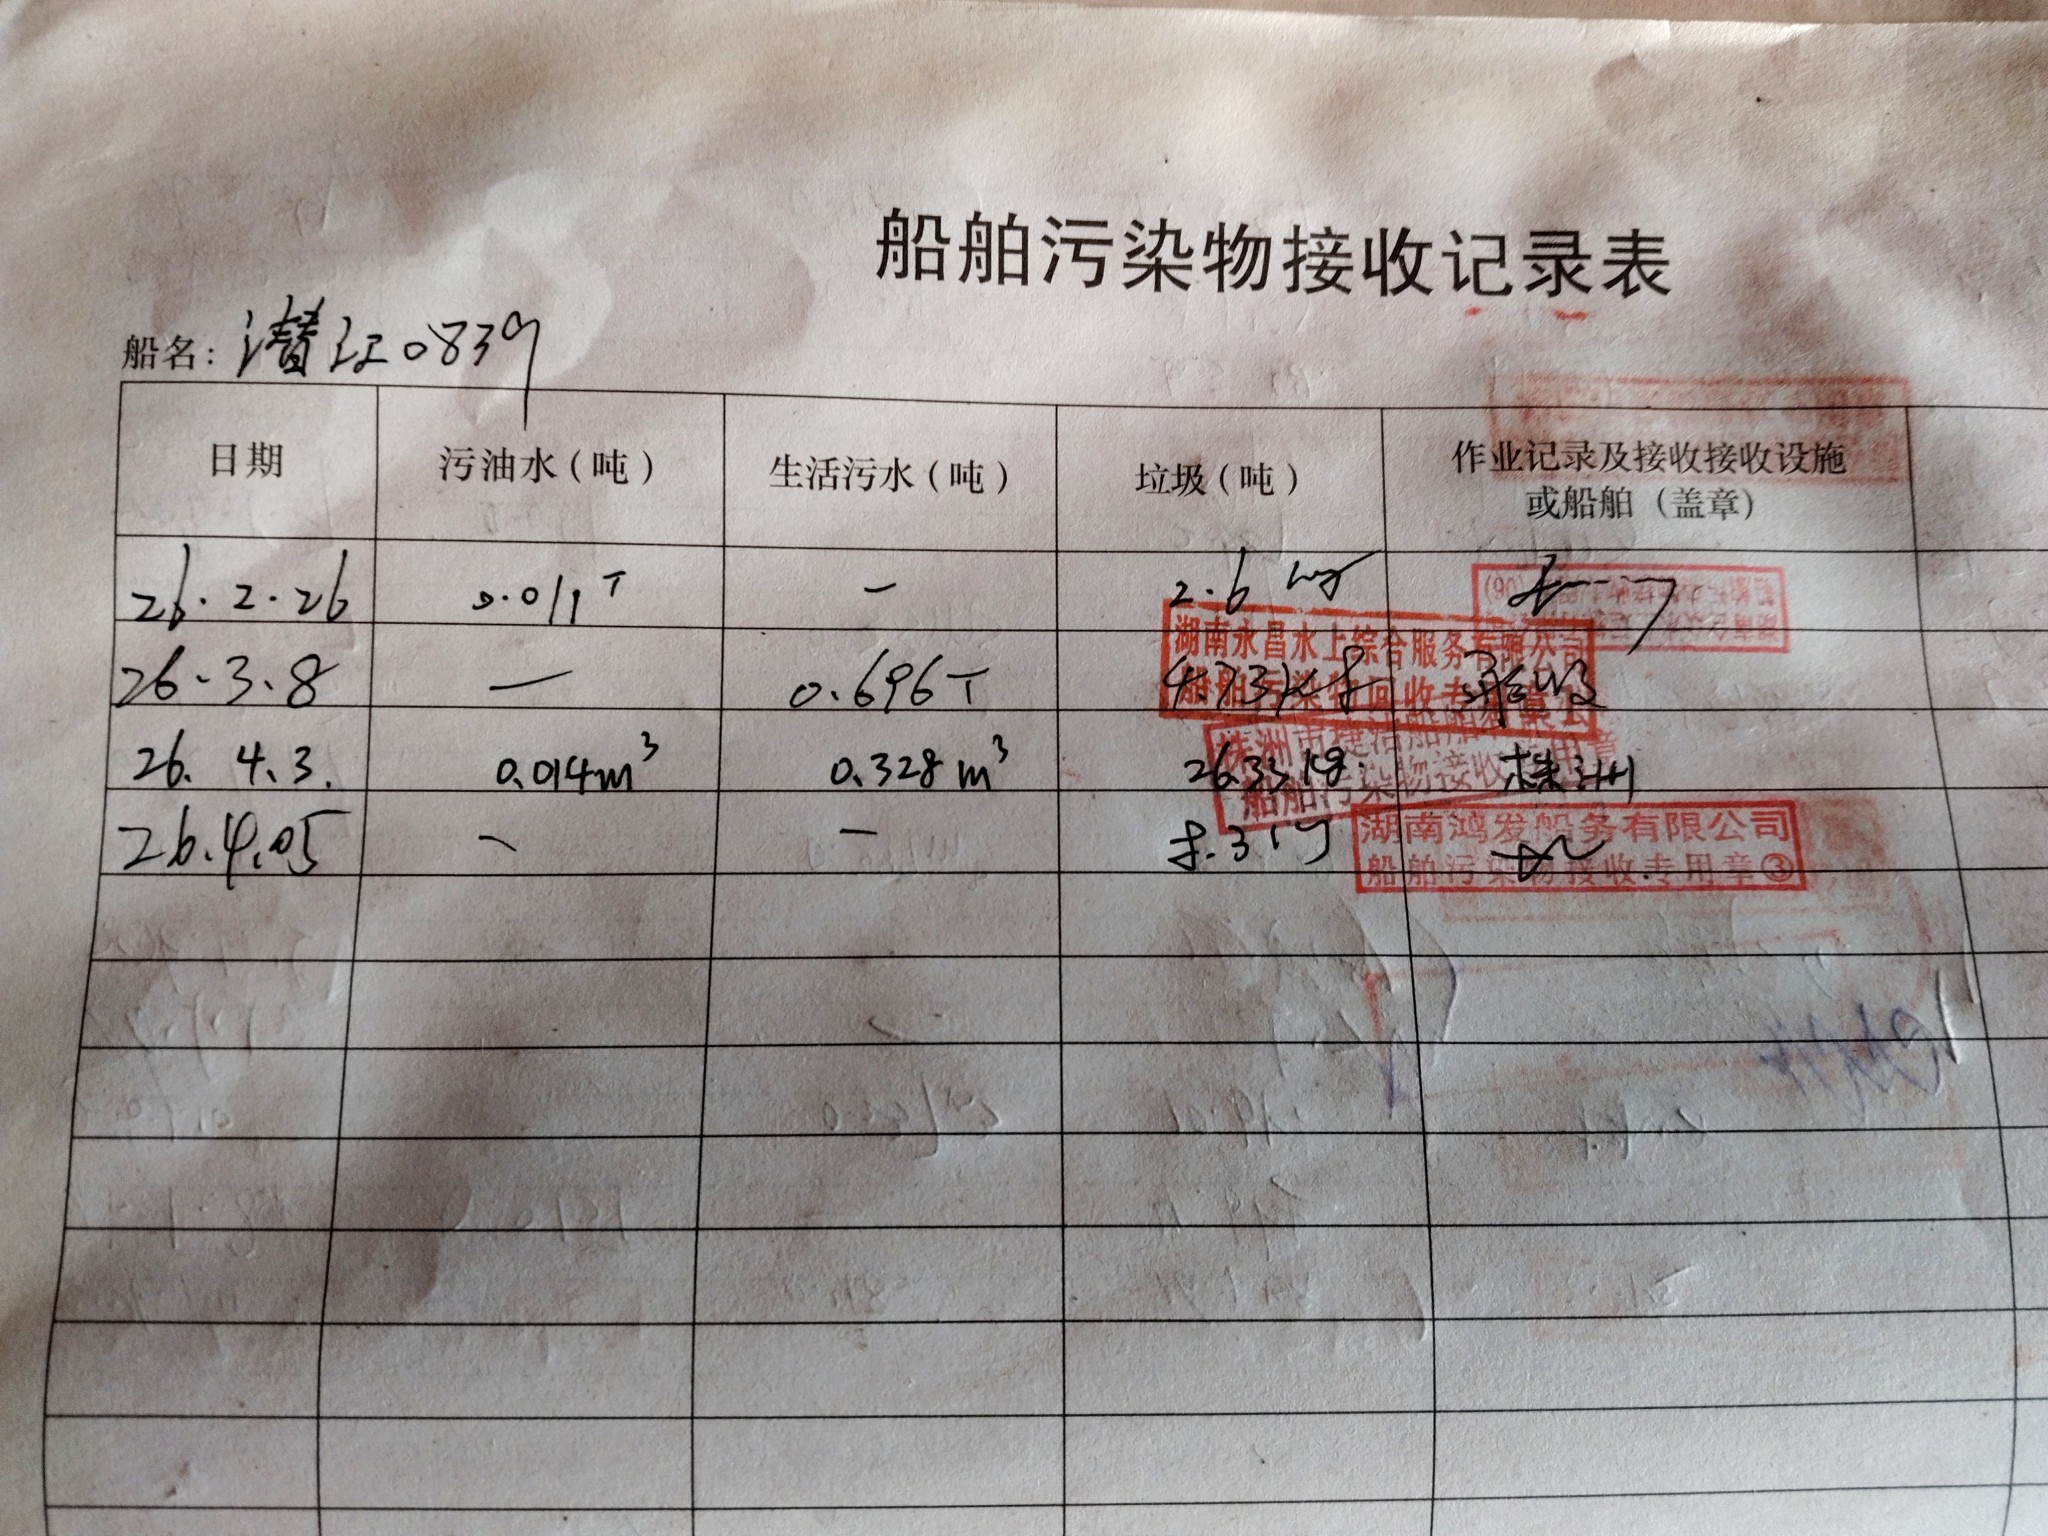 船舶污染物接收记录表
船名：潜江0839
日期 污油水（吨） 生活污水（吨） 垃圾（吨） 作业记录及接收接收设施
或船舶（盖章）
26.2.26 0.011T — 2.6 kg
湖南永昌水上综合服务有限公司
船舶污染物回收专用章
26.3.8 — 0.696T 4.73kg
26. 4.3. 0.014m³ 0.328m³ 26.33kg. 株洲
株洲市捷洁船舶
船舶污染物接收专用章
26.4.05 — —
湖南鸿发船务有限公司
船舶污染物接收专用章③